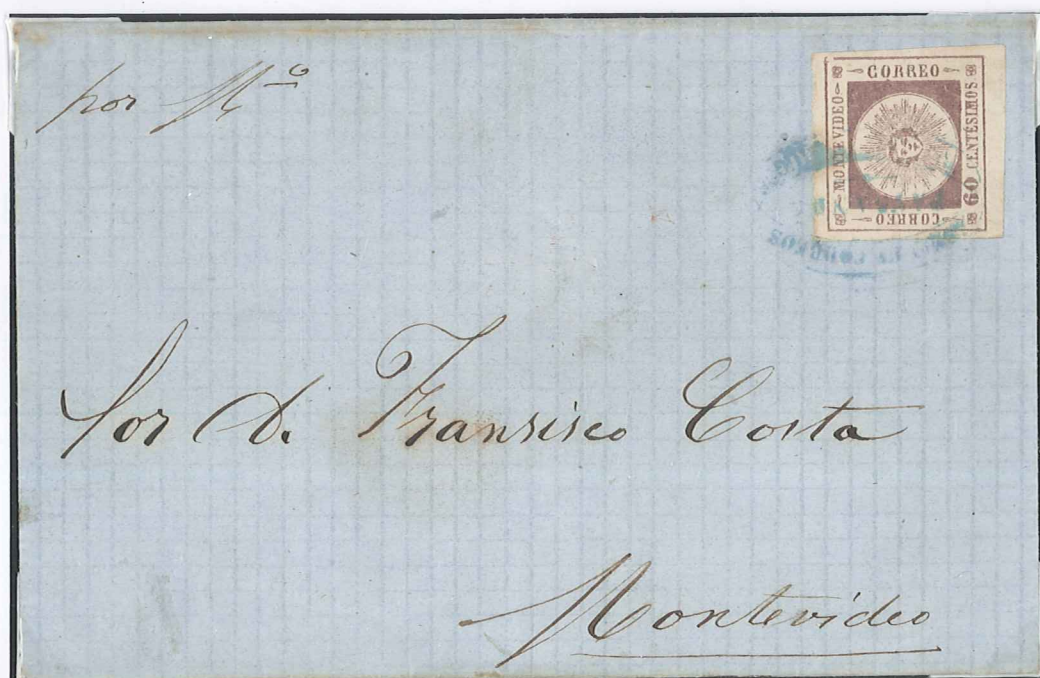 por M.º
CORREO
MONTEVIDEO
60 CENTESIMOS
CORREO
CORREOS
Sor D. Fransisco Costa
Montevideo